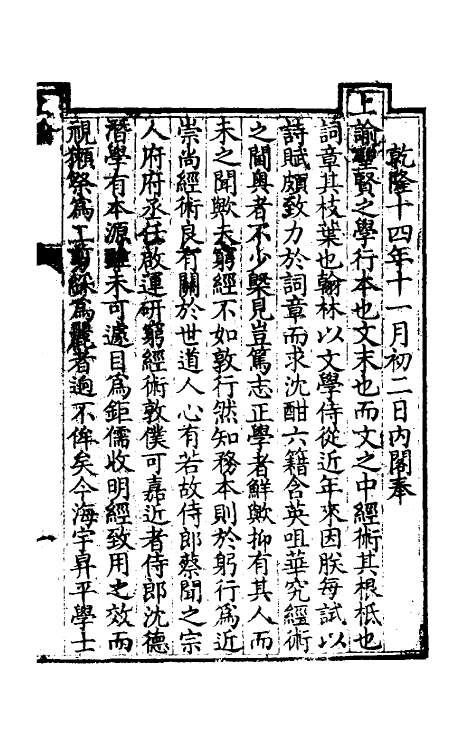 乾隆十四年十一月初二日内閣奉
上諭聖賢之學行本也文末也而文之中經術其根柢也
詞章其枝葉也翰林以文學侍從近年來因朕每試以
詩賦頗致力於詞章而求沈酣六籍含英咀華究經術
之閫奥者不少槩見豈篤志正學者鮮歟抑有其人而
未之聞歟夫窮經不如敦行然知務本則於躬行為近
崇尚經術良有關於世道人心有若故侍郎蔡聞之宗
人府府丞任啟運研窮經術敦樸可嘉近者侍郎沈德
潛學有本源雖未可遽目為鉅儒收明經致用之效而
視獺祭為工剪綵為麗者逈不侔矣今海宇昇平學士